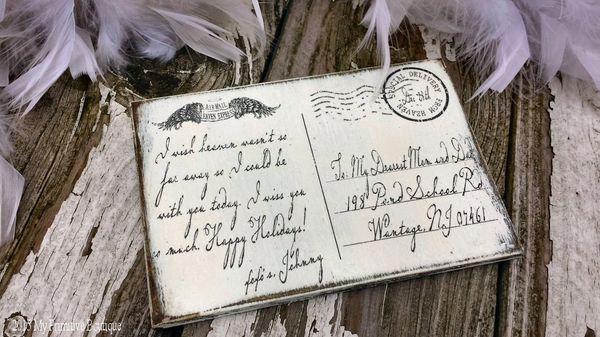 AIR MAIL
HEAVEN EXPRESS
I wish heaven wasn't so
far away so I could be
with you today. I miss you
so much. Happy Holidays!
xoxo's, Johnny
SPECIAL DELIVERY
FROM HEAVEN
To: My Dearest Mom and Dad
198 Pond School Rd
Wantage, NJ 07461
2015 My Primitive Boutique